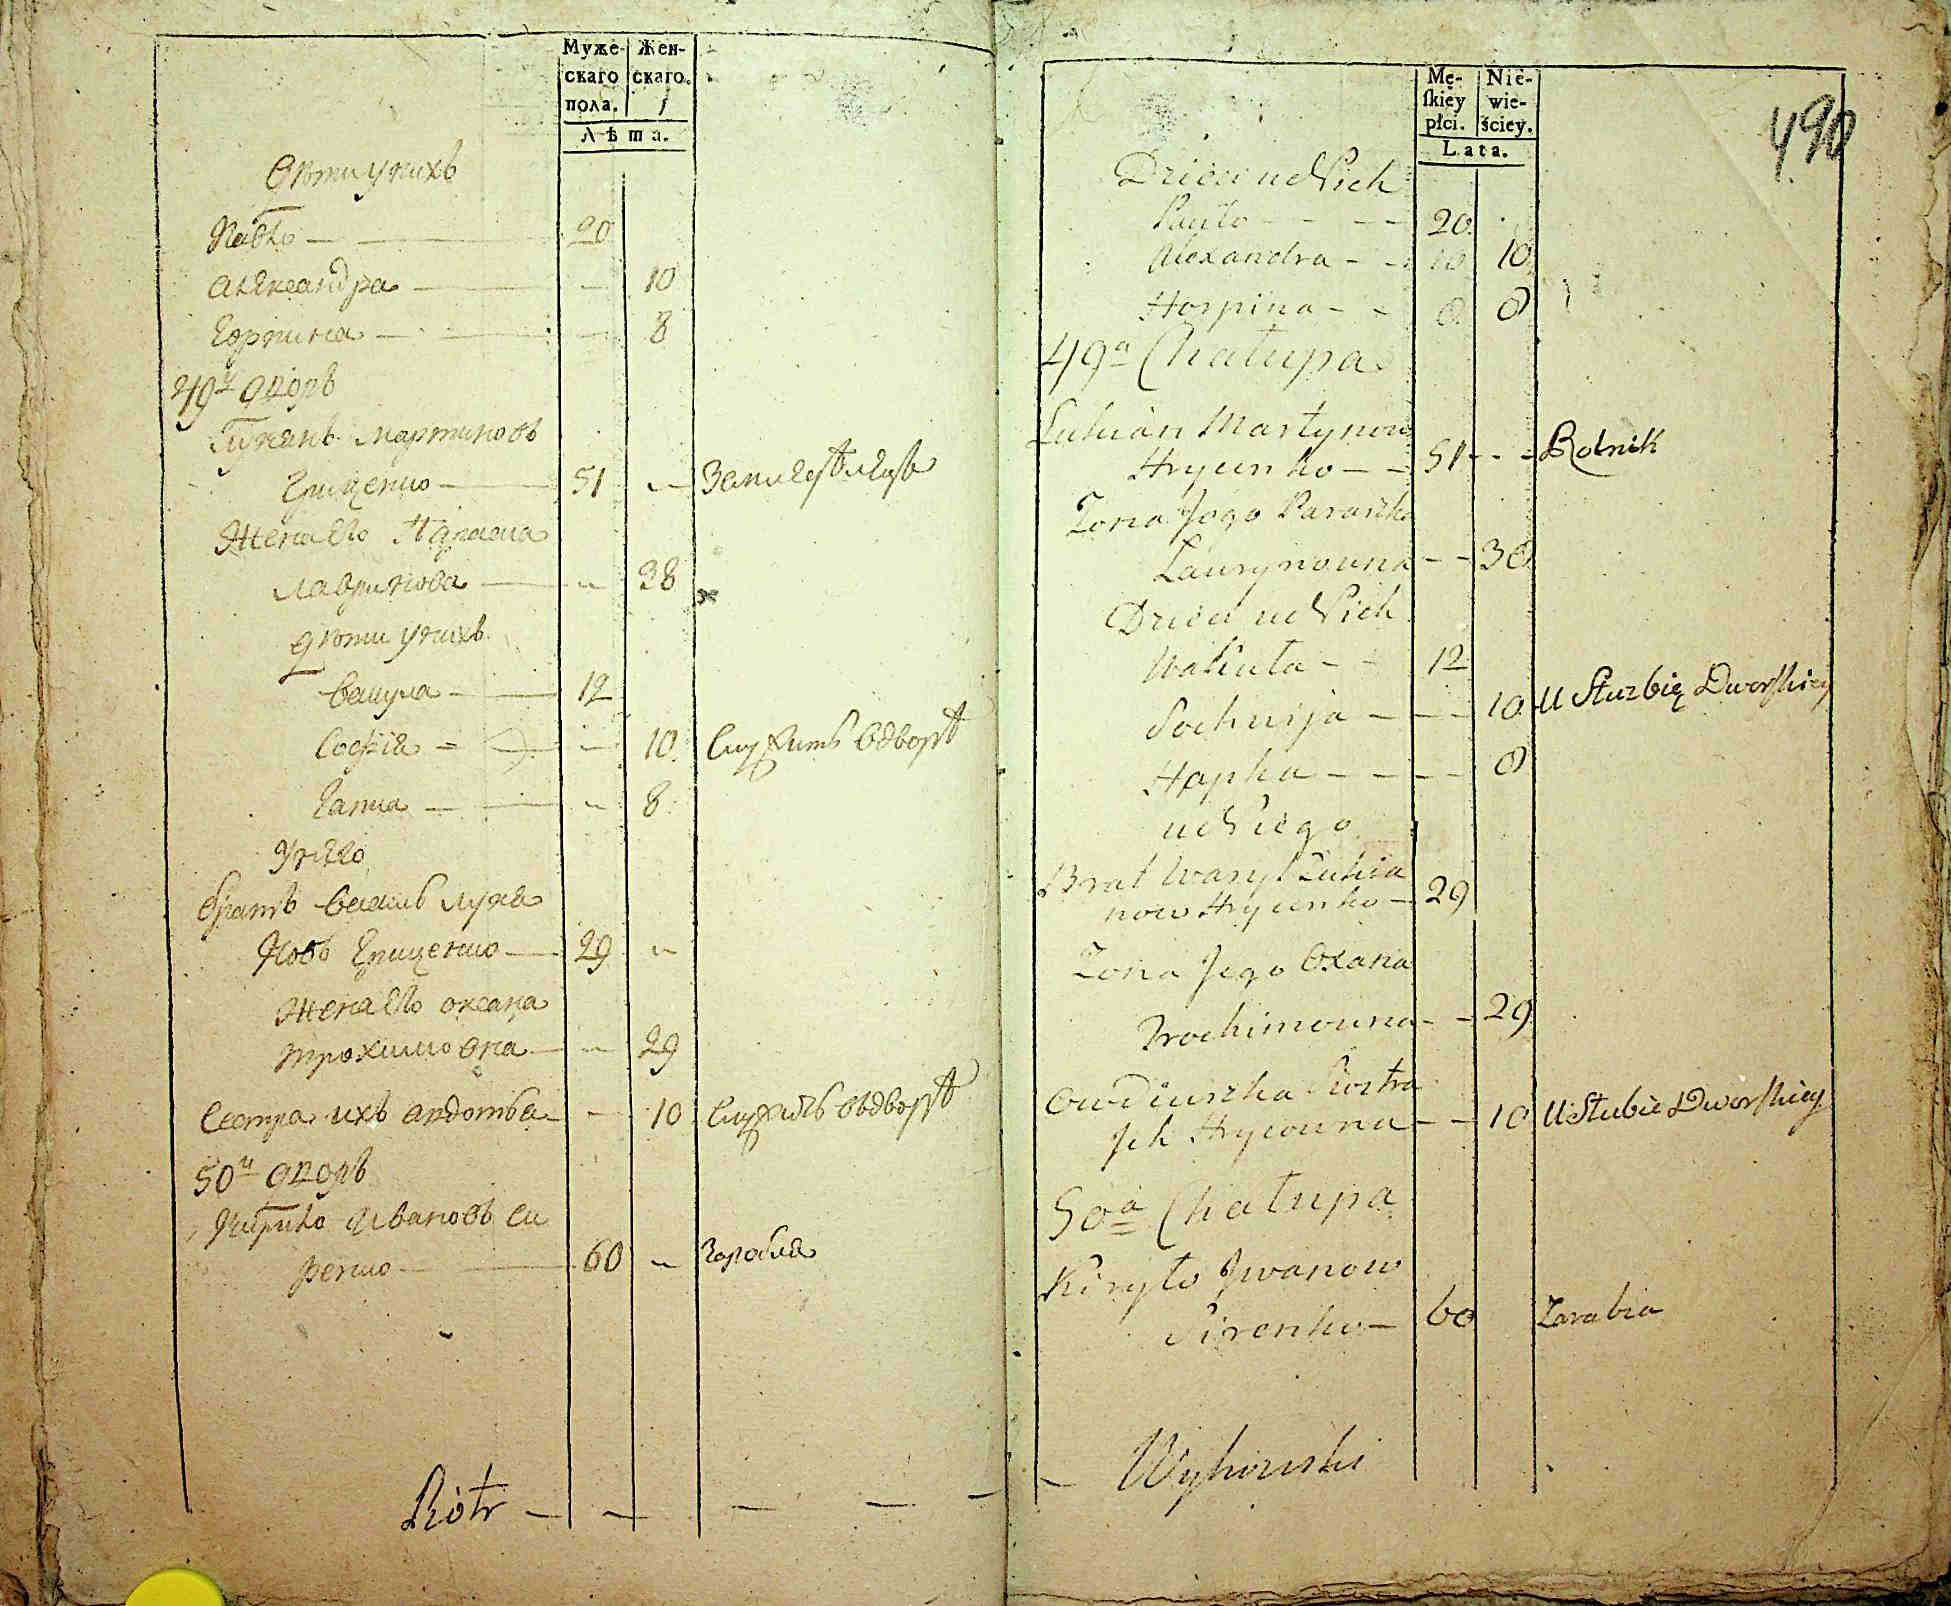 Муже-
скаго
пола.
Жен-
скаго.
Лѣта.
Дѣти у нихъ
Павло 20
Александра 10
Горпина 8
49й дворъ
Мартиновъ
Гриценко 51 Земледѣлецъ
Жена Его Параска
Лавринова 38
дѣти у нихъ
Вакула 12
Софія 10 Служитъ в дворѣ
Гапка 8
У него
братъ Василь Лукя
новъ Гриценко 29
Жена Его Оксана
Трохимовна 29
Сестра ихъ Авдотья 10 Служитъ в дворѣ
50й дворъ
Кирило Ивановъ Си
ренко 60
Piotr
490
Mę-
ſkiey
płci.
Nie-
wie-
ściey.
Lata.
Dzieci u Nich
Pawło 20
Alexandra 10 10
Horpina 8 8
49a Chałupa
Łukian Martynow
Hrycenko 51 Rolnik
Żona Jego Paraszka
Laurynowna 38
Dzieci u Nich
Wakuła 12
Sochwija 10 U Służbię Dworſkiey
Hapka 8
u Niego
Brat Wasyl Łukia
now Hrycenko 29
Żona Jego Oxana
Trochimowna 29
Owdiuszka Siostra
Jch Hrycowna 10 U Służbie Dworſkiey
50a Chałupa
Kiryło Jwanow
Sirenko 60 Zarabia
Wyhowski